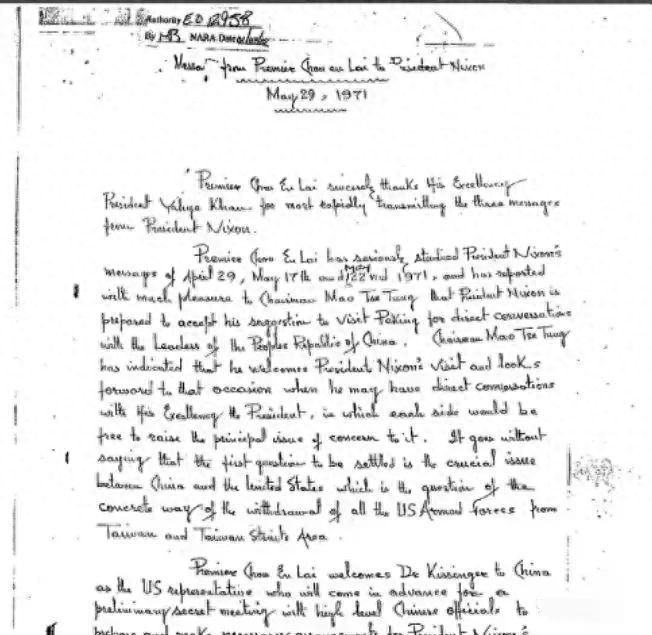 Authority EO 12958
By MB NARA Date
Messa from Premier Chou en Lai to President Nixon
May 29, 1971
Premier Chou En Lai sincerely thanks His Excellency
President Yahya Khan for most rapidly transmitting the three messages
from President Nixon.
Premier Chou En Lai has seriously studied President Nixon's
messages of April 29, May 17th and May 22nd 1971, and has reported
with much pleasure to Chairman Mao Tse Tung that President Nixon is
prepared to accept his suggestion to visit Peking for direct conversations
with the Leaders of the Peoples Republic of China. Chairman Mao Tse Tung
has indicated that he welcomes President Nixon's visit and looks
forward to that occasion when he may have direct conversations
with His Excellency the President, in which each side would be
free to raise the principal issue of concern to it. It goes without
saying that the first question to be settled is the crucial issue
between China and the United States which is the question of the
concrete way of the withdrawal of all the US Armed Forces from
Taiwan and Taiwan Straits Area.
Premier Chou En Lai welcomes Dr Kissinger to China
as the US representative who will come in advance for a
preliminary secret meeting with high level Chinese officials to
prepare and make necessary arrangements for President Nixon's